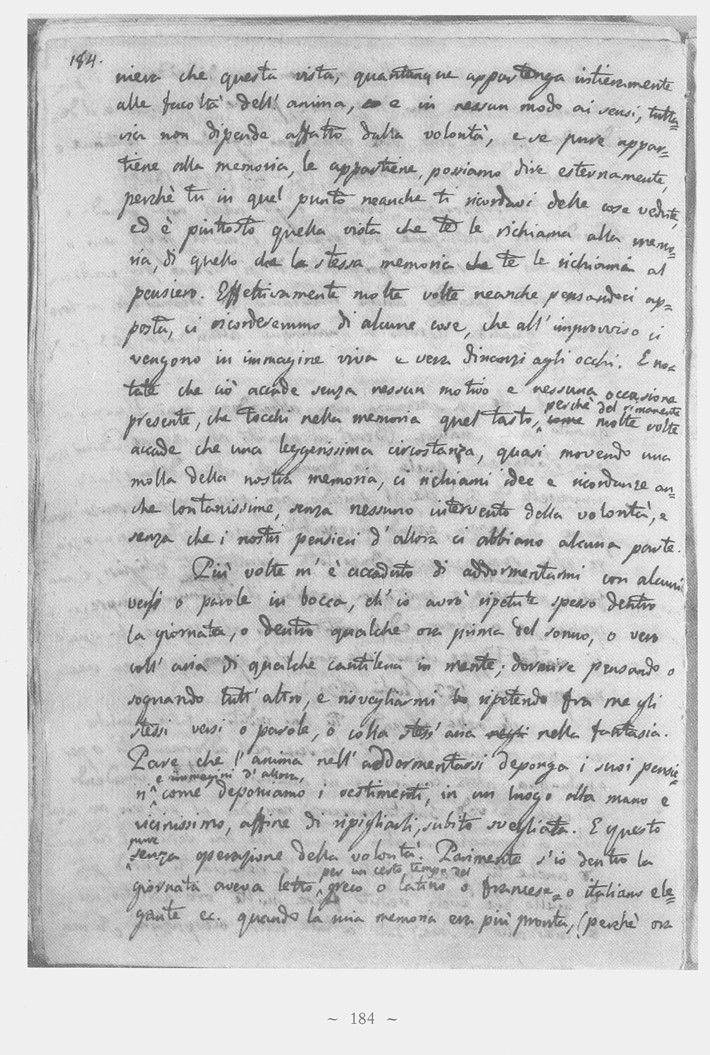 184.
niera che questa vista, quantunque appartenga intieramente
alle facoltà dell'anima, e in nessun modo ai sensi, tutta=
via non dipende affatto dalla volontà, e se pure appar=
tiene alla memoria, le appartiene, possiamo dire esternamente,
perchè tu in quel punto neanche ti ricordavi delle cose vedute,
ed è piuttosto quella vista che te le richiama alla memo=
ria, di quello che la stessa memoria che te le richiami al
pensiero. Effettivamente molte volte neanche pensandoci ap=
posta, ci ricorderemmo di alcune cose, che all'improvviso ci
vengono in immagine viva e vera dinanzi agli occhi. E no=
tate che ciò accade senza nessun motivo e nessuna occasione
presente, che tocchi nella memoria quel tasto, perchè del rimanente molte volte
accade che una leggerissima circostanza, quasi movendo una
molla della nostra memoria, ci richiami idee e ricordanze an=
che lontanissime, senza nessuno intervento della volontà, e
senza che i nostri pensieri d'allora ci abbiano alcuna parte.
Più volte m'è accaduto di addormentarmi con alcuni
versi o parole in bocca, ch'io avrò ripetute spesso dentro
la giornata, o dentro qualche ora prima del sonno, o vero
coll'aria di qualche cantilena in mente; dormire pensando o
sognando tutt'altro, e risvegliarmi ripetendo fra me gli
stessi versi o parole, o colla stess'aria nella fantasia.
Pare che l'anima nell'addormentarsi deponga i suoi pensie=
ri e immagini d'allora, come deponiamo i vestimenti, in un luogo alla mano e
vicinissimo, affine di ripigliarli, subito svegliata. E questo
pure senza operazione della volontà. Parimente s'io dentro la
giornata aveva letto per un certo tempo del greco o latino o francese o italiano ele=
gante ec. quando la mia memoria era più pronta, (perchè ora
~ 184 ~